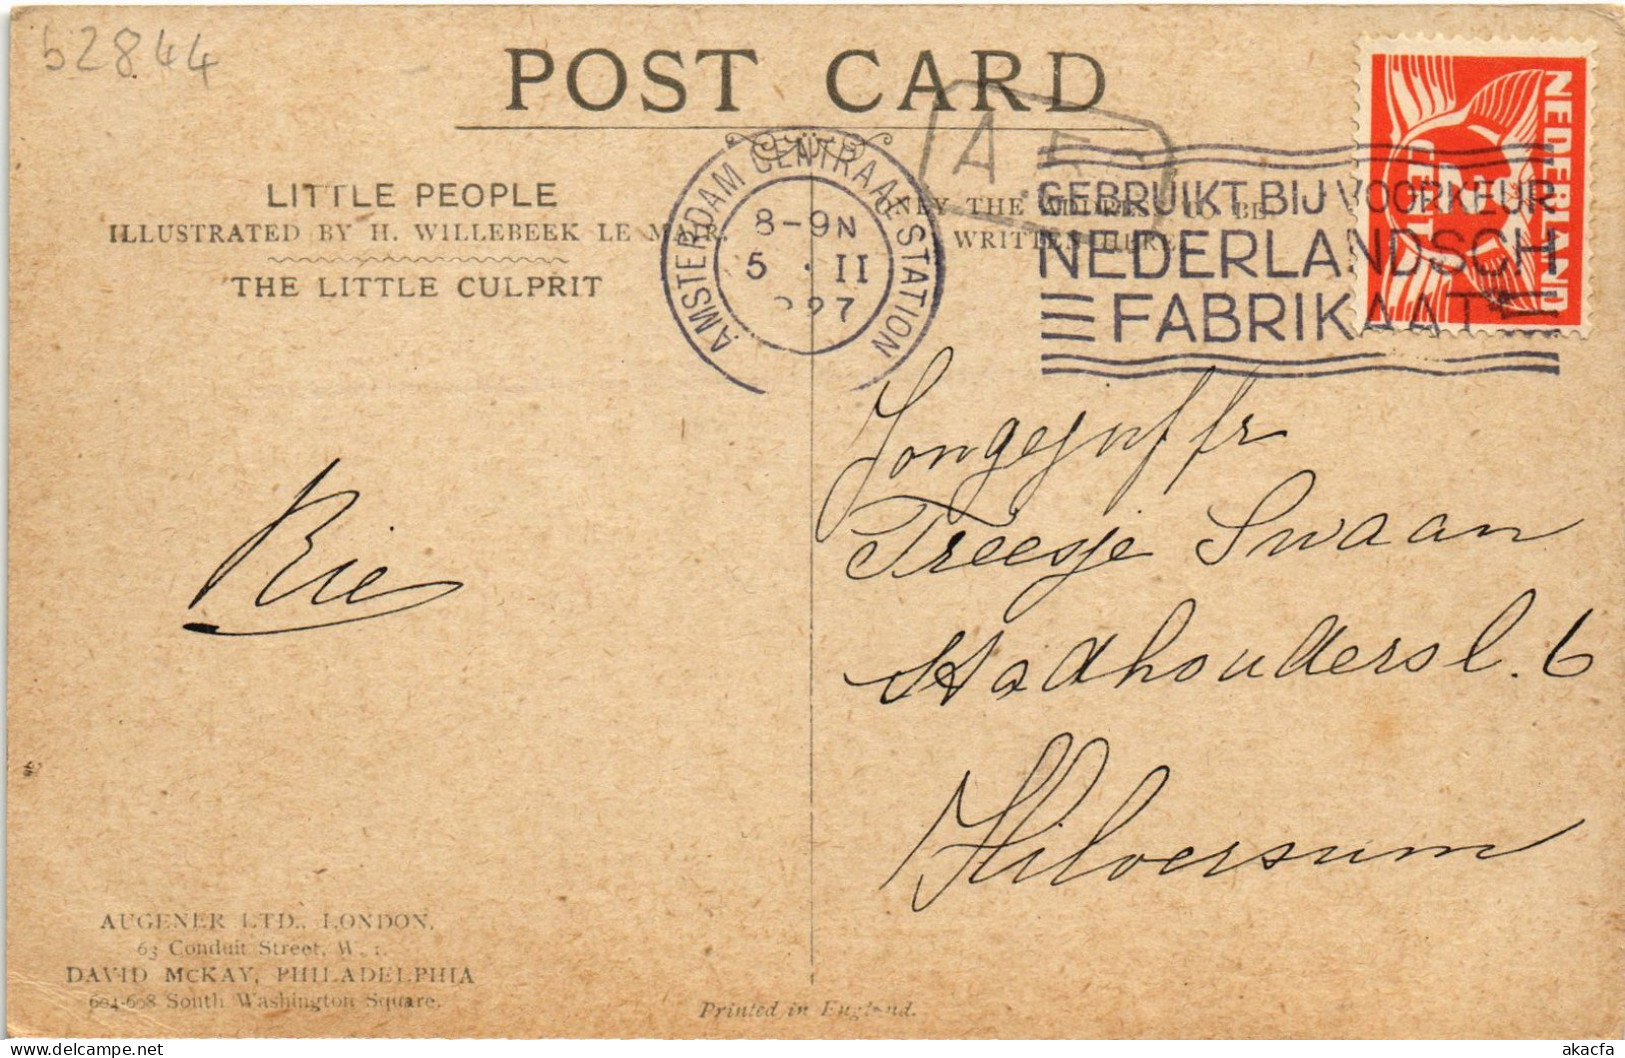 52844
POST CARD
LITTLE PEOPLE
ILLUSTRATED BY H. WILLEBEEK LE MAIR.
THE LITTLE CULPRIT
ONLY THE ADDRESS TO BE
WRITTEN HERE
AMSTERDAM CENTRAAL STATION
8-9N
5 . II
A.
GEBRUIKT BIJ VOORKEUR
NEDERLANDSCH
FABRIKAAT
NEDERLAND
CENT
Jongejuffr
Treesje Swaan
Stadhoudersl. 6
Hilversum
Rie
AUGENER LTD., LONDON,
63 Conduit Street, W. 1.
DAVID McKAY, PHILADELPHIA
604-608 South Washington Square.
Printed in England.
akacfa